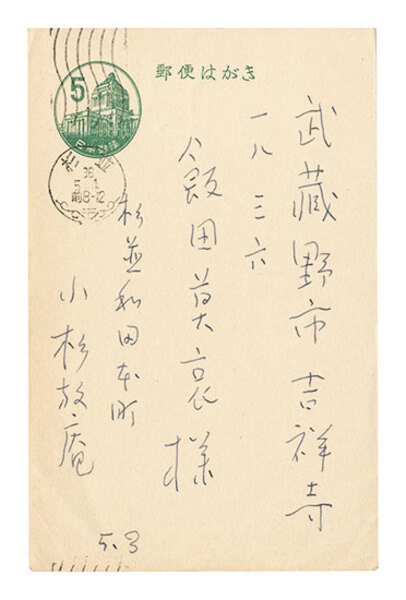 郵便はがき
5
日本郵便
36
5.
前8-12
武蔵野市吉祥寺
一八三六
飯田莫哀様
杉並和田本町
小杉放庵
5.3